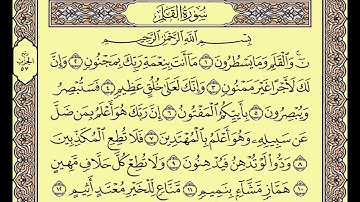 سُورَةُ القَلَمِ
بِسْمِ اللَّهِ الرَّحْمَٰنِ الرَّحِيمِ
نٓ ۚ وَالْقَلَمِ وَمَا يَسْطُرُونَ ١ مَا أَنتَ بِنِعْمَةِ رَبِّكَ بِمَجْنُونٍ ٢ وَإِنَّ
لَكَ لَأَجْرًا غَيْرَ مَمْنُونٍ ٣ وَإِنَّكَ لَعَلَىٰ خُلُقٍ عَظِيمٍ ٤ فَسَتُبْصِرُ
وَيُبْصِرُونَ ٥ بِأَييِّكُمُ الْمَفْتُونُ ٦ إِنَّ رَبَّكَ هُوَ أَعْلَمُ بِمَن ضَلَّ
عَن سَبِيلِهِ وَهُوَ أَعْلَمُ بِالْمُهْتَدِينَ ٧ فَلَا تُطِعِ الْمُكَذِّبِينَ
٨ وَدُّوا لَوْ تُدْهِنُ فَيُدْهِنُونَ ٩ وَلَا تُطِعْ كُلَّ حَلَّافٍ مَّهِينٍ
١٠ هَمَّازٍ مَّشَّاءٍ بِنَمِيمٍ ١١ مَّنَّاعٍ لِّلْخَيْرِ مُعْتَدٍ أَثِيمٍ ١٢